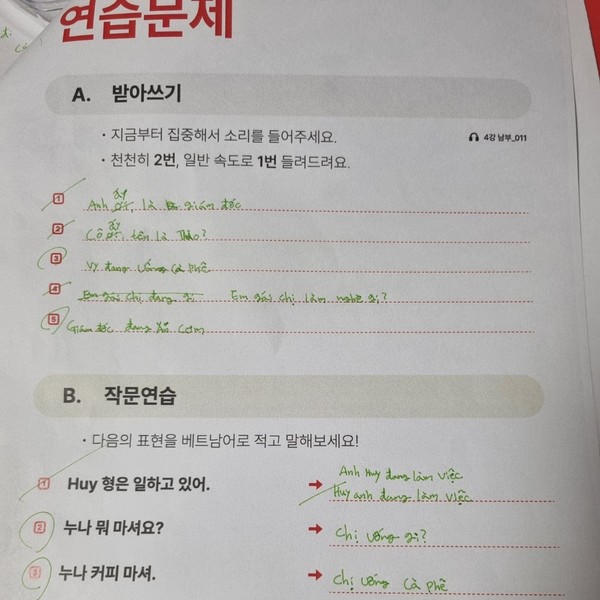 연습문제
A. 받아쓰기
· 지금부터 집중해서 소리를 들어주세요.
4강 남부_011
· 천천히 2번, 일반 속도로 1번 들려드려요.
1 Anh ấy là giám đốc
2 Cô ấy tên là Thảo?
3 Vy đang uống cà phê
4 Em gái chị đang gì Em gái chị làm nghề gì?
5 Giám đốc đang ăn cơm
B. 작문연습
· 다음의 표현을 베트남어로 적고 말해보세요!
Anh Huy đang làm việc
1 Huy 형은 일하고 있어. → Huy anh đang làm việc
2 누나 뭐 마셔요? → chị uống gì?
3 누나 커피 마셔. → chị uống cà phê